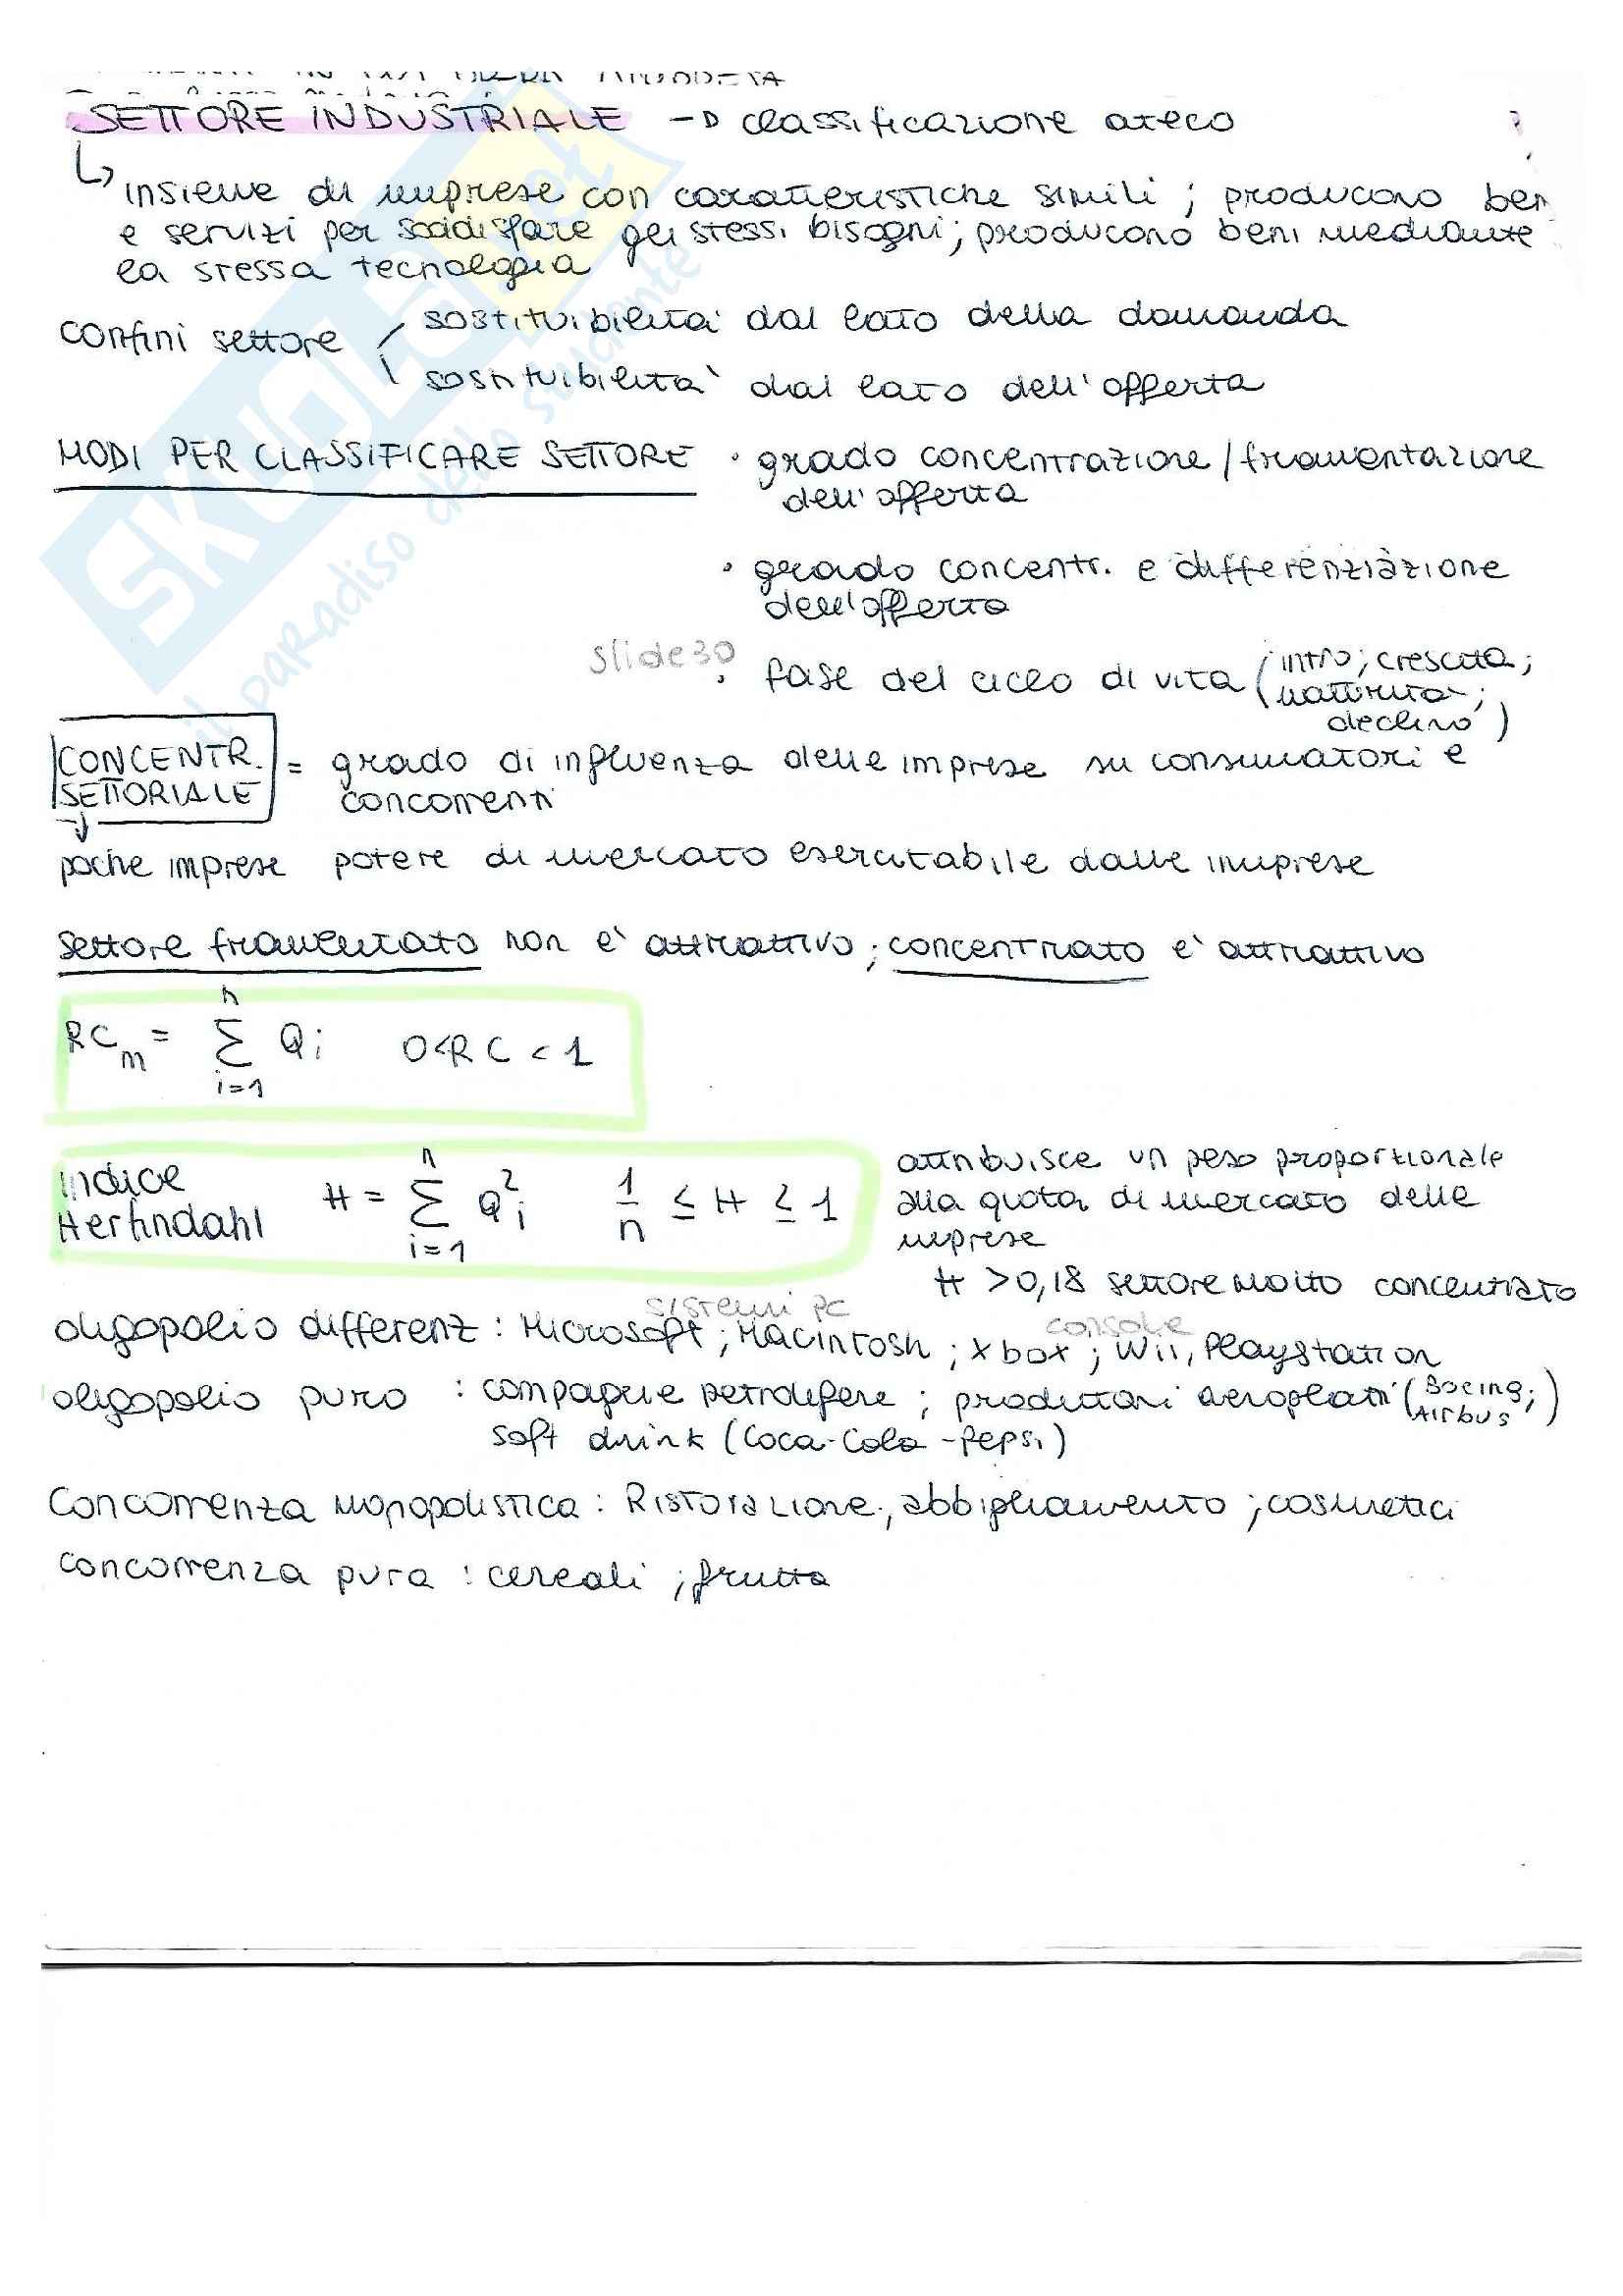 SETTORE INDUSTRIALE → classificazione ateco
↳ insieme di imprese con caratteristiche simili ; producono ben
e servizi per soddisfare gli stessi bisogni; producono beni mediante
la stessa tecnologia
confini settore / sostituibilità dal lato della domanda
\ sostituibilità dal lato dell'offerta
MODI PER CLASSIFICARE SETTORE • grado concentrazione / frammentazione
dell'offerta
• grado concentr. e differenziazione
dell'offerta
slide 30
• fase del ciclo di vita (intro; crescita;
maturità;
declino)
CONCENTR. = grado di influenza delle imprese su consumatori e
SETTORIALE concorrenti
↓
poche imprese potere di mercato esercitabile dalle imprese
settore frammentato non è attrattivo; concentrato è attrattivo
RCm = n Σ i=1 Qi 0<RC<1
Indice Herfindahl H = n Σ i=1 Qi² 1/n ≤ H ≥ 1
attribuisce un peso proporzionale
alla quota di mercato delle
imprese
H > 0,18 settore molto concentrato
sistemi pc console
oligopolio differenz : Microsoft ; Macintosh ; xbox ; Wii, Playstation
oligopolio puro : compagnie petrolifere ; produttori aeroplani (Boeing; Airbus)
soft drink (Coca-Cola - Pepsi)
Concorrenza monopolistica : Ristorazione; abbigliamento ; cosmetici
concorrenza pura : cereali ; frutta
SKUOLA.net
il paradiso dello studente